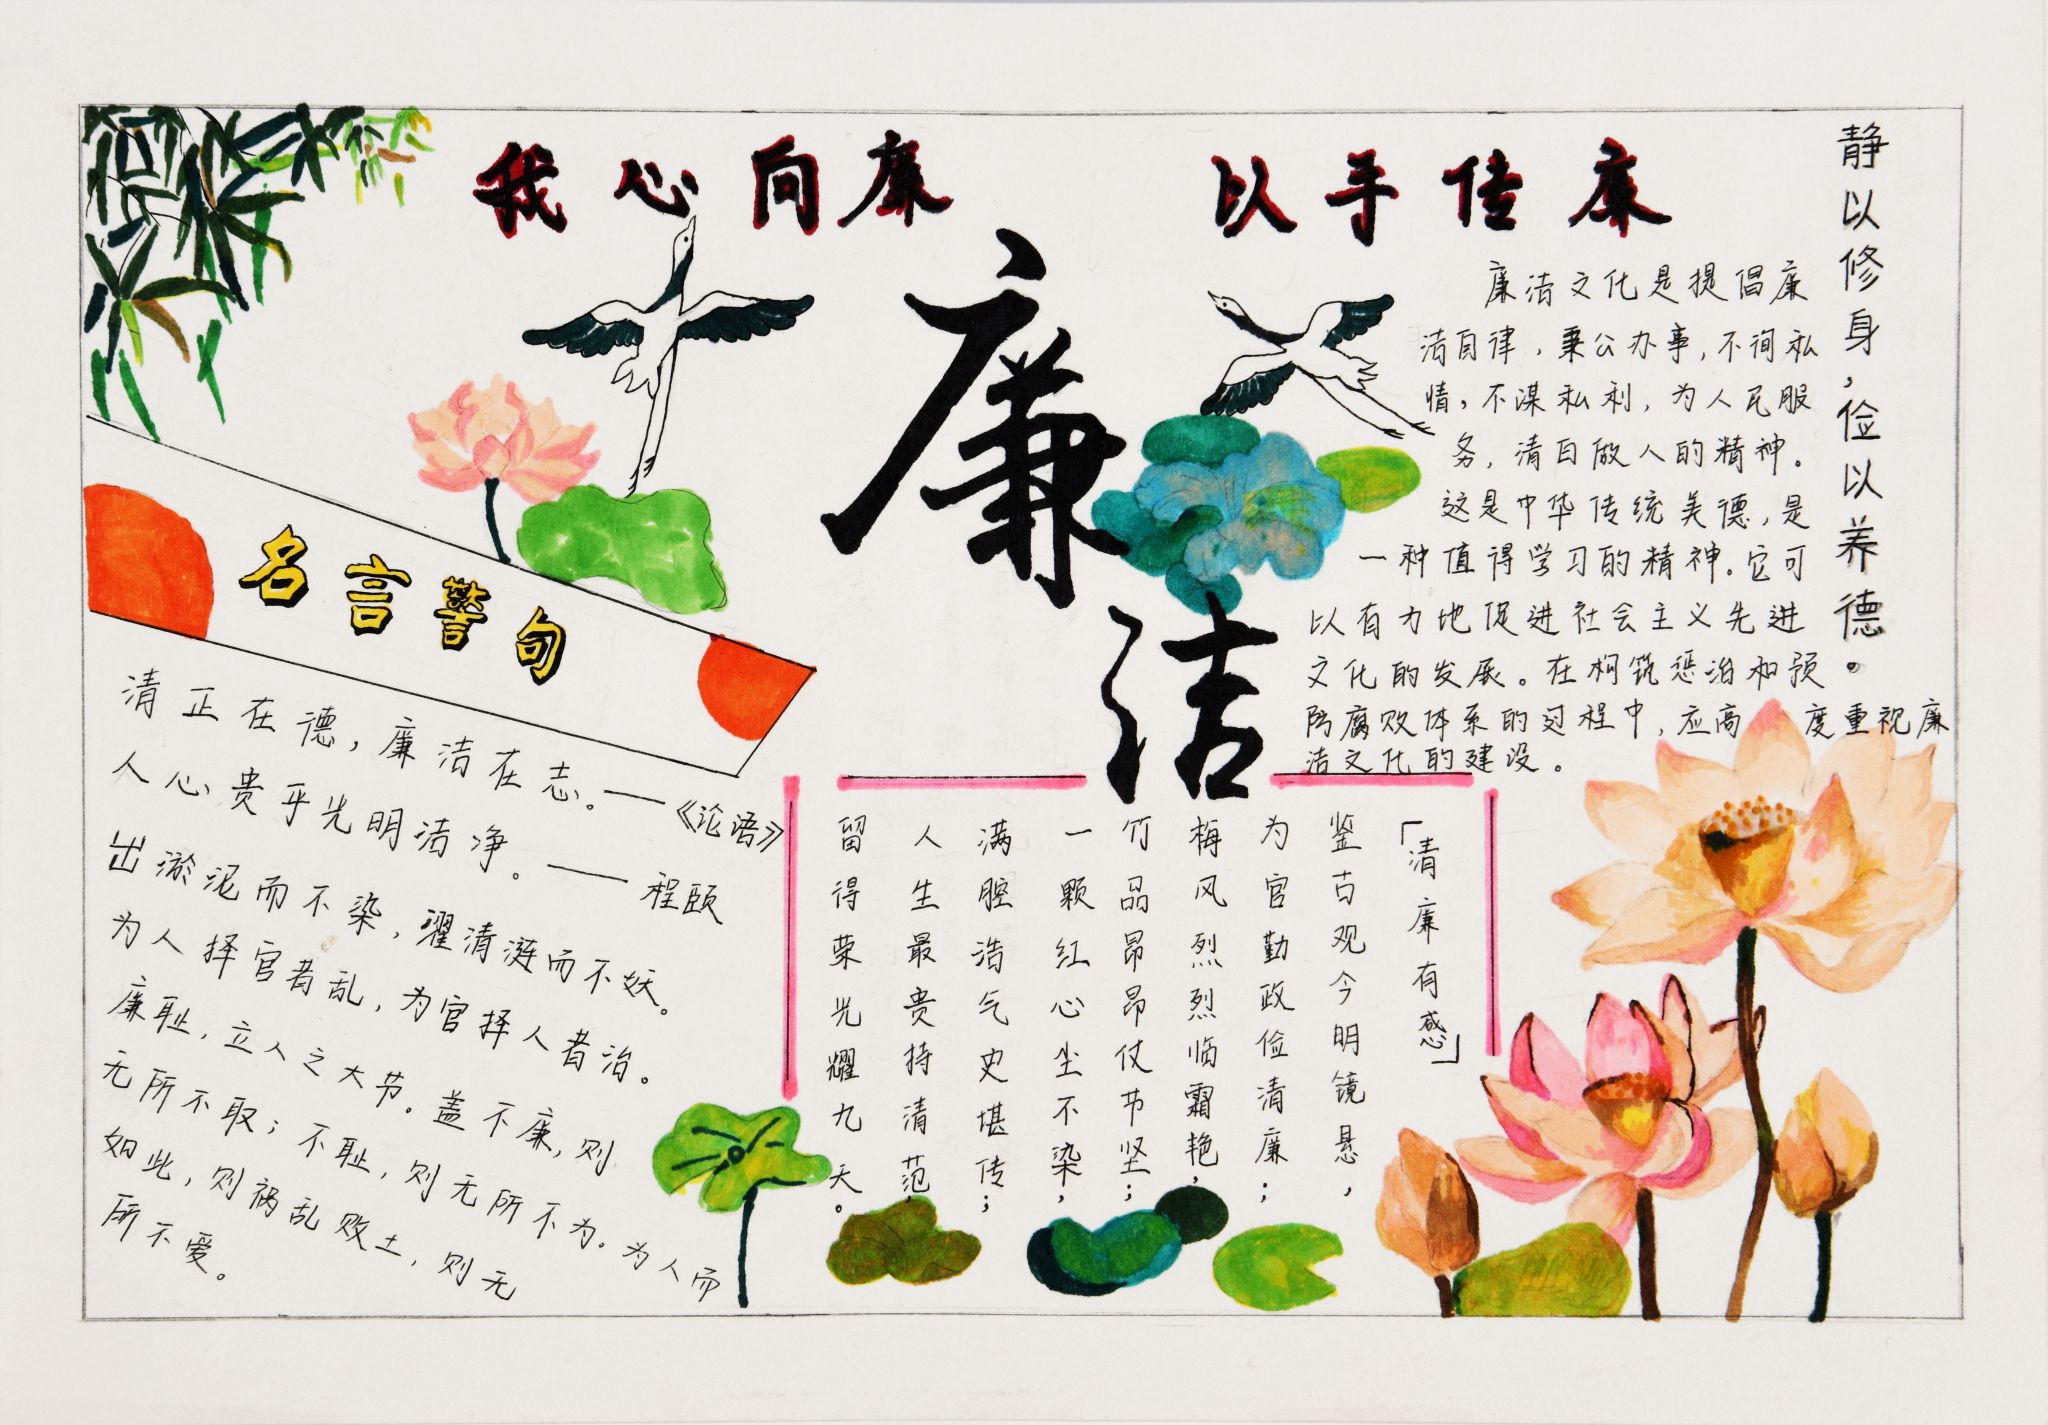 我心向廉
以手传廉
廉洁
静以修身，俭以养德。
廉洁文化是提倡廉
洁自律，秉公办事，不徇私
情，不谋私利，为人民服
务，清白做人的精神。
这是中华传统美德，是
一种值得学习的精神。它可
以有力地促进社会主义先进
文化的发展。在构筑惩治和预
防腐败体系的过程中，应高度重视廉
洁文化的建设。
名言警句
清正在德，廉洁在志。——《论语》
人心贵乎光明洁净。——程颐
出淤泥而不染，濯清涟而不妖。
为人择官者乱，为官择人者治。
廉耻，立人之大节。盖不廉，则
无所不取；不耻，则无所不为。为人而
如此，则祸乱败土，则无
所不爱。
「清廉有感」
鉴古观今明镜悬，
为官勤政俭清廉；
梅风烈烈临霜艳，
竹品昂昂仗节坚；
一颗红心尘不染，
满腔浩气史堪传；
人生最贵持清范，
留得荣光耀九天。